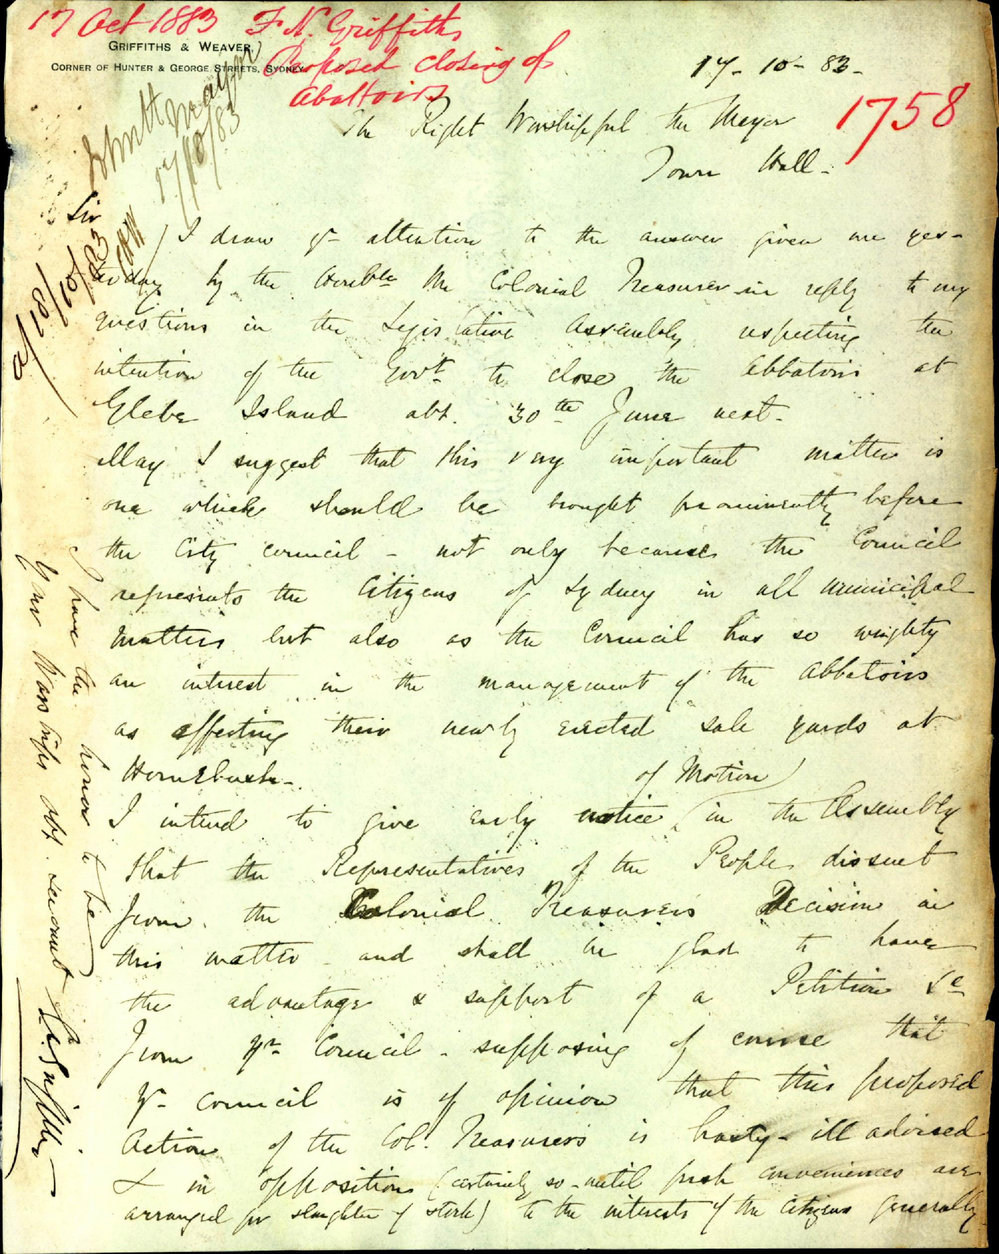 17 Oct 1883 F. N. Griffiths
Proposed closing of
Abattoirs
GRIFFITHS & WEAVER,
CORNER OF HUNTER & GEORGE STREETS, SYDNEY
17-10-83-
1758
The Right Worshipful the Mayor
Town Hall-
17/10/83
a/18/10/83
Sir
I draw yr attention to the answer given me yes-
terday by the Honble the Colonial Treasurer in reply to my
questions in the Legislative Assembly respecting the
intention of the Govt to close the Abbatoirs at
Glebe Island abt. 30th June next-
May I suggest that this very important matter is
one which should be brought prominently before
the City Council - not only because the Council
represents the Citizens of Sydney in all municipal
matters but also as the Council has so weighty
an interest in the management of the Abbatoirs
as affecting their newly erected sale yards at
Homebush-
I intend to give early notice of Motion in the Assembly
that the Representatives of the People dissent
from the Colonial Treasurers Decision in
this matter and shall be glad to have
the advantage & support of a Petition &c
from yr Council - supposing of course that
yr Council is of opinion that this proposed
Action of the Col. Treasurers is hasty - ill advised
& in opposition (certainly so until fresh conveniences are
arranged for slaughter of stock) to the interests of the Citizens generally
I have the honor to be
Your Worships obt. servant